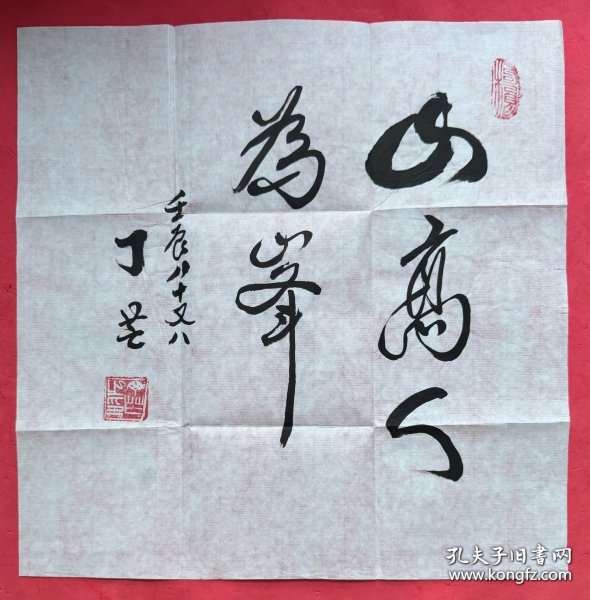 山高人
為峯
壬辰八十又八
丁芒
孔夫子旧书网
www.kongfz.com